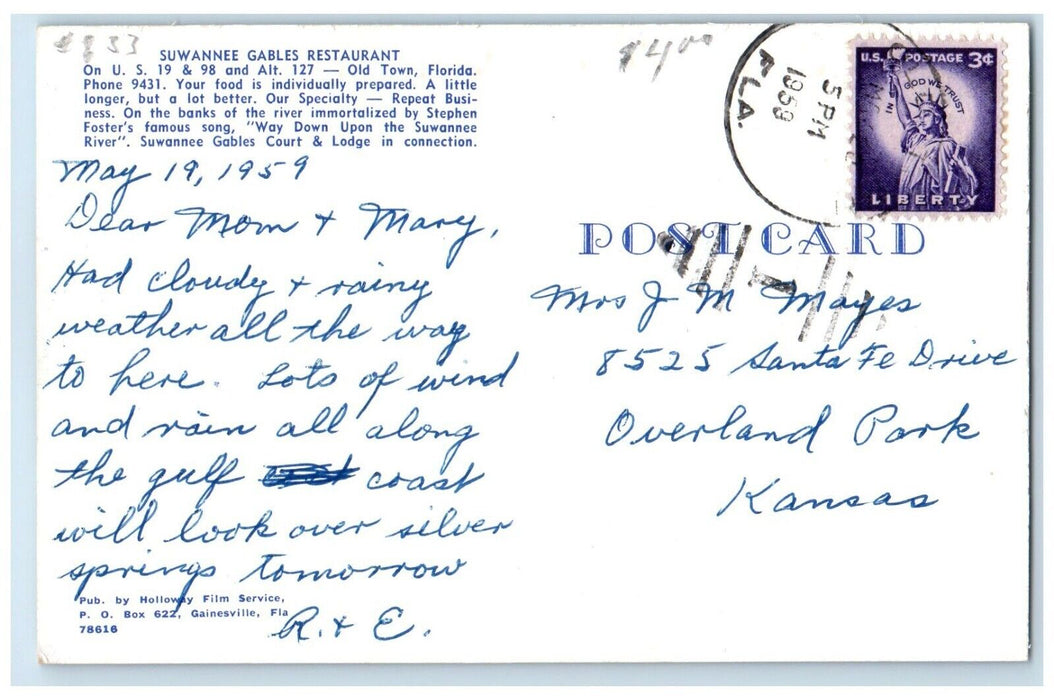 $4.00
SUWANNEE GABLES RESTAURANT
On U. S. 19 & 98 and Alt. 127 — Old Town, Florida.
Phone 9431. Your food is individually prepared. A little
longer, but a lot better. Our Specialty — Repeat Busi-
ness. On the banks of the river immortalized by Stephen
Foster's famous song, "Way Down Upon the Suwannee
River". Suwannee Gables Court & Lodge in connection.
May 19, 1959
Dear Mom + Mary,
Had cloudy + rainy
weather all the way
to here. Lots of wind
and rain all along
the gulf coast
will look over silver
springs tomorrow
R. + E.
Pub. by Holloway Film Service,
P. O. Box 622, Gainesville, Fla
78616
5 PM
1959
FLA.
U.S. POSTAGE 3¢
IN GOD WE TRUST
LIBERTY
POST CARD
Mrs J M Mayes
8525 Santa Fe Drive
Overland Park
Kansas